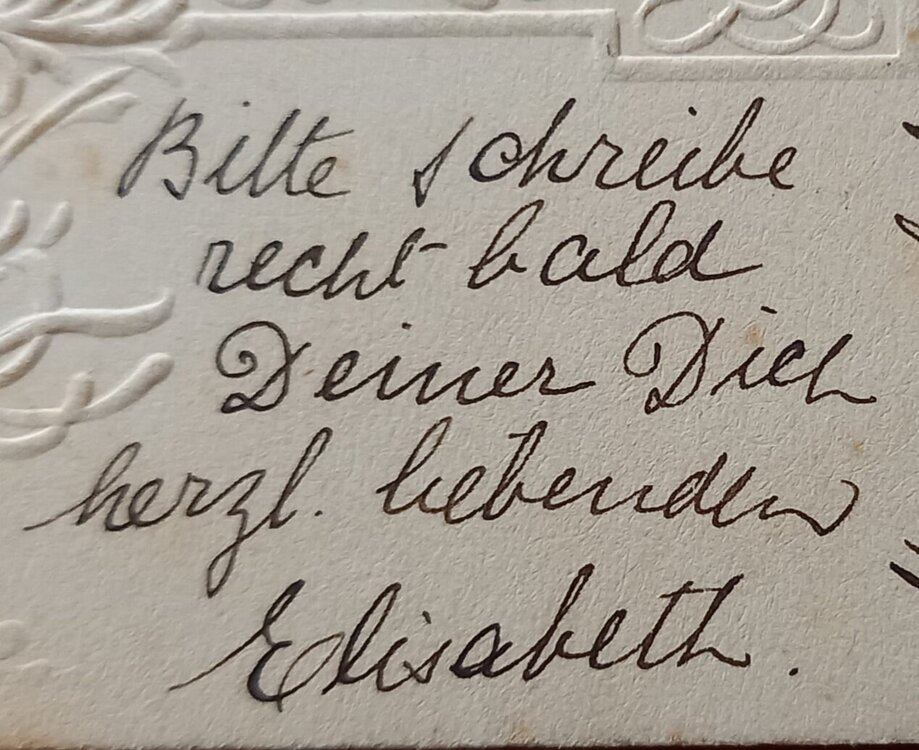 Bitte schreibe
recht bald
Deiner Dich
herzl. liebenden
Elisabeth.